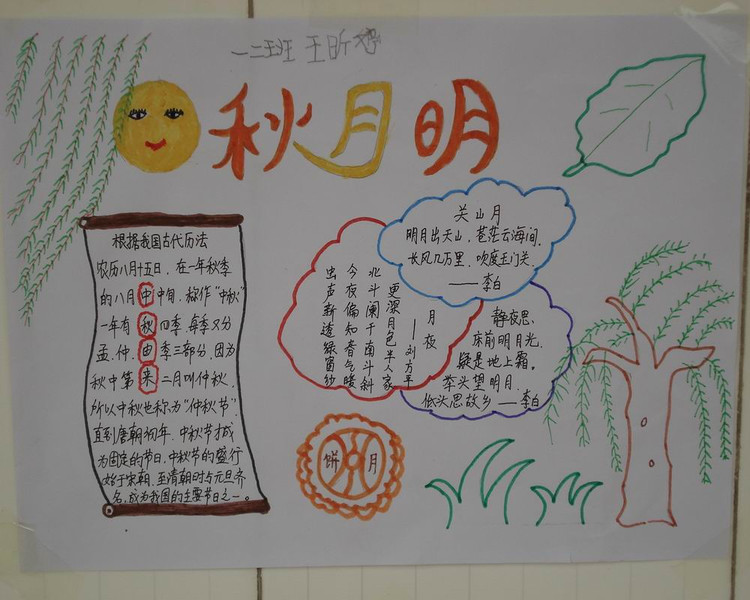 一二班 王昕
秋月明
根据我国古代历法
农历八月十五日，在一年秋季
的八月中中旬，故作“中秋”
一年有秋四季，每季又分
孟、仲、由季三部分，因为
秋中第来二月叫仲秋，
所以中秋也称为“仲秋节”
直到唐朝初年，中秋节才成
为固定的节日，中秋节的盛行
始于宋朝，至清朝时与元旦齐
名，成为我国的主要节日之一。
关山月
明月出天山，苍茫云海间，
长风几万里，吹度玉门关。
——李白
月夜——刘方平
更深月色半人家
北斗阑干南斗斜
今夜偏知春气暖
虫声新透绿窗纱
静夜思
床前明月光，
疑是地上霜。
举头望明月，
低头思故乡——李白
饼 月